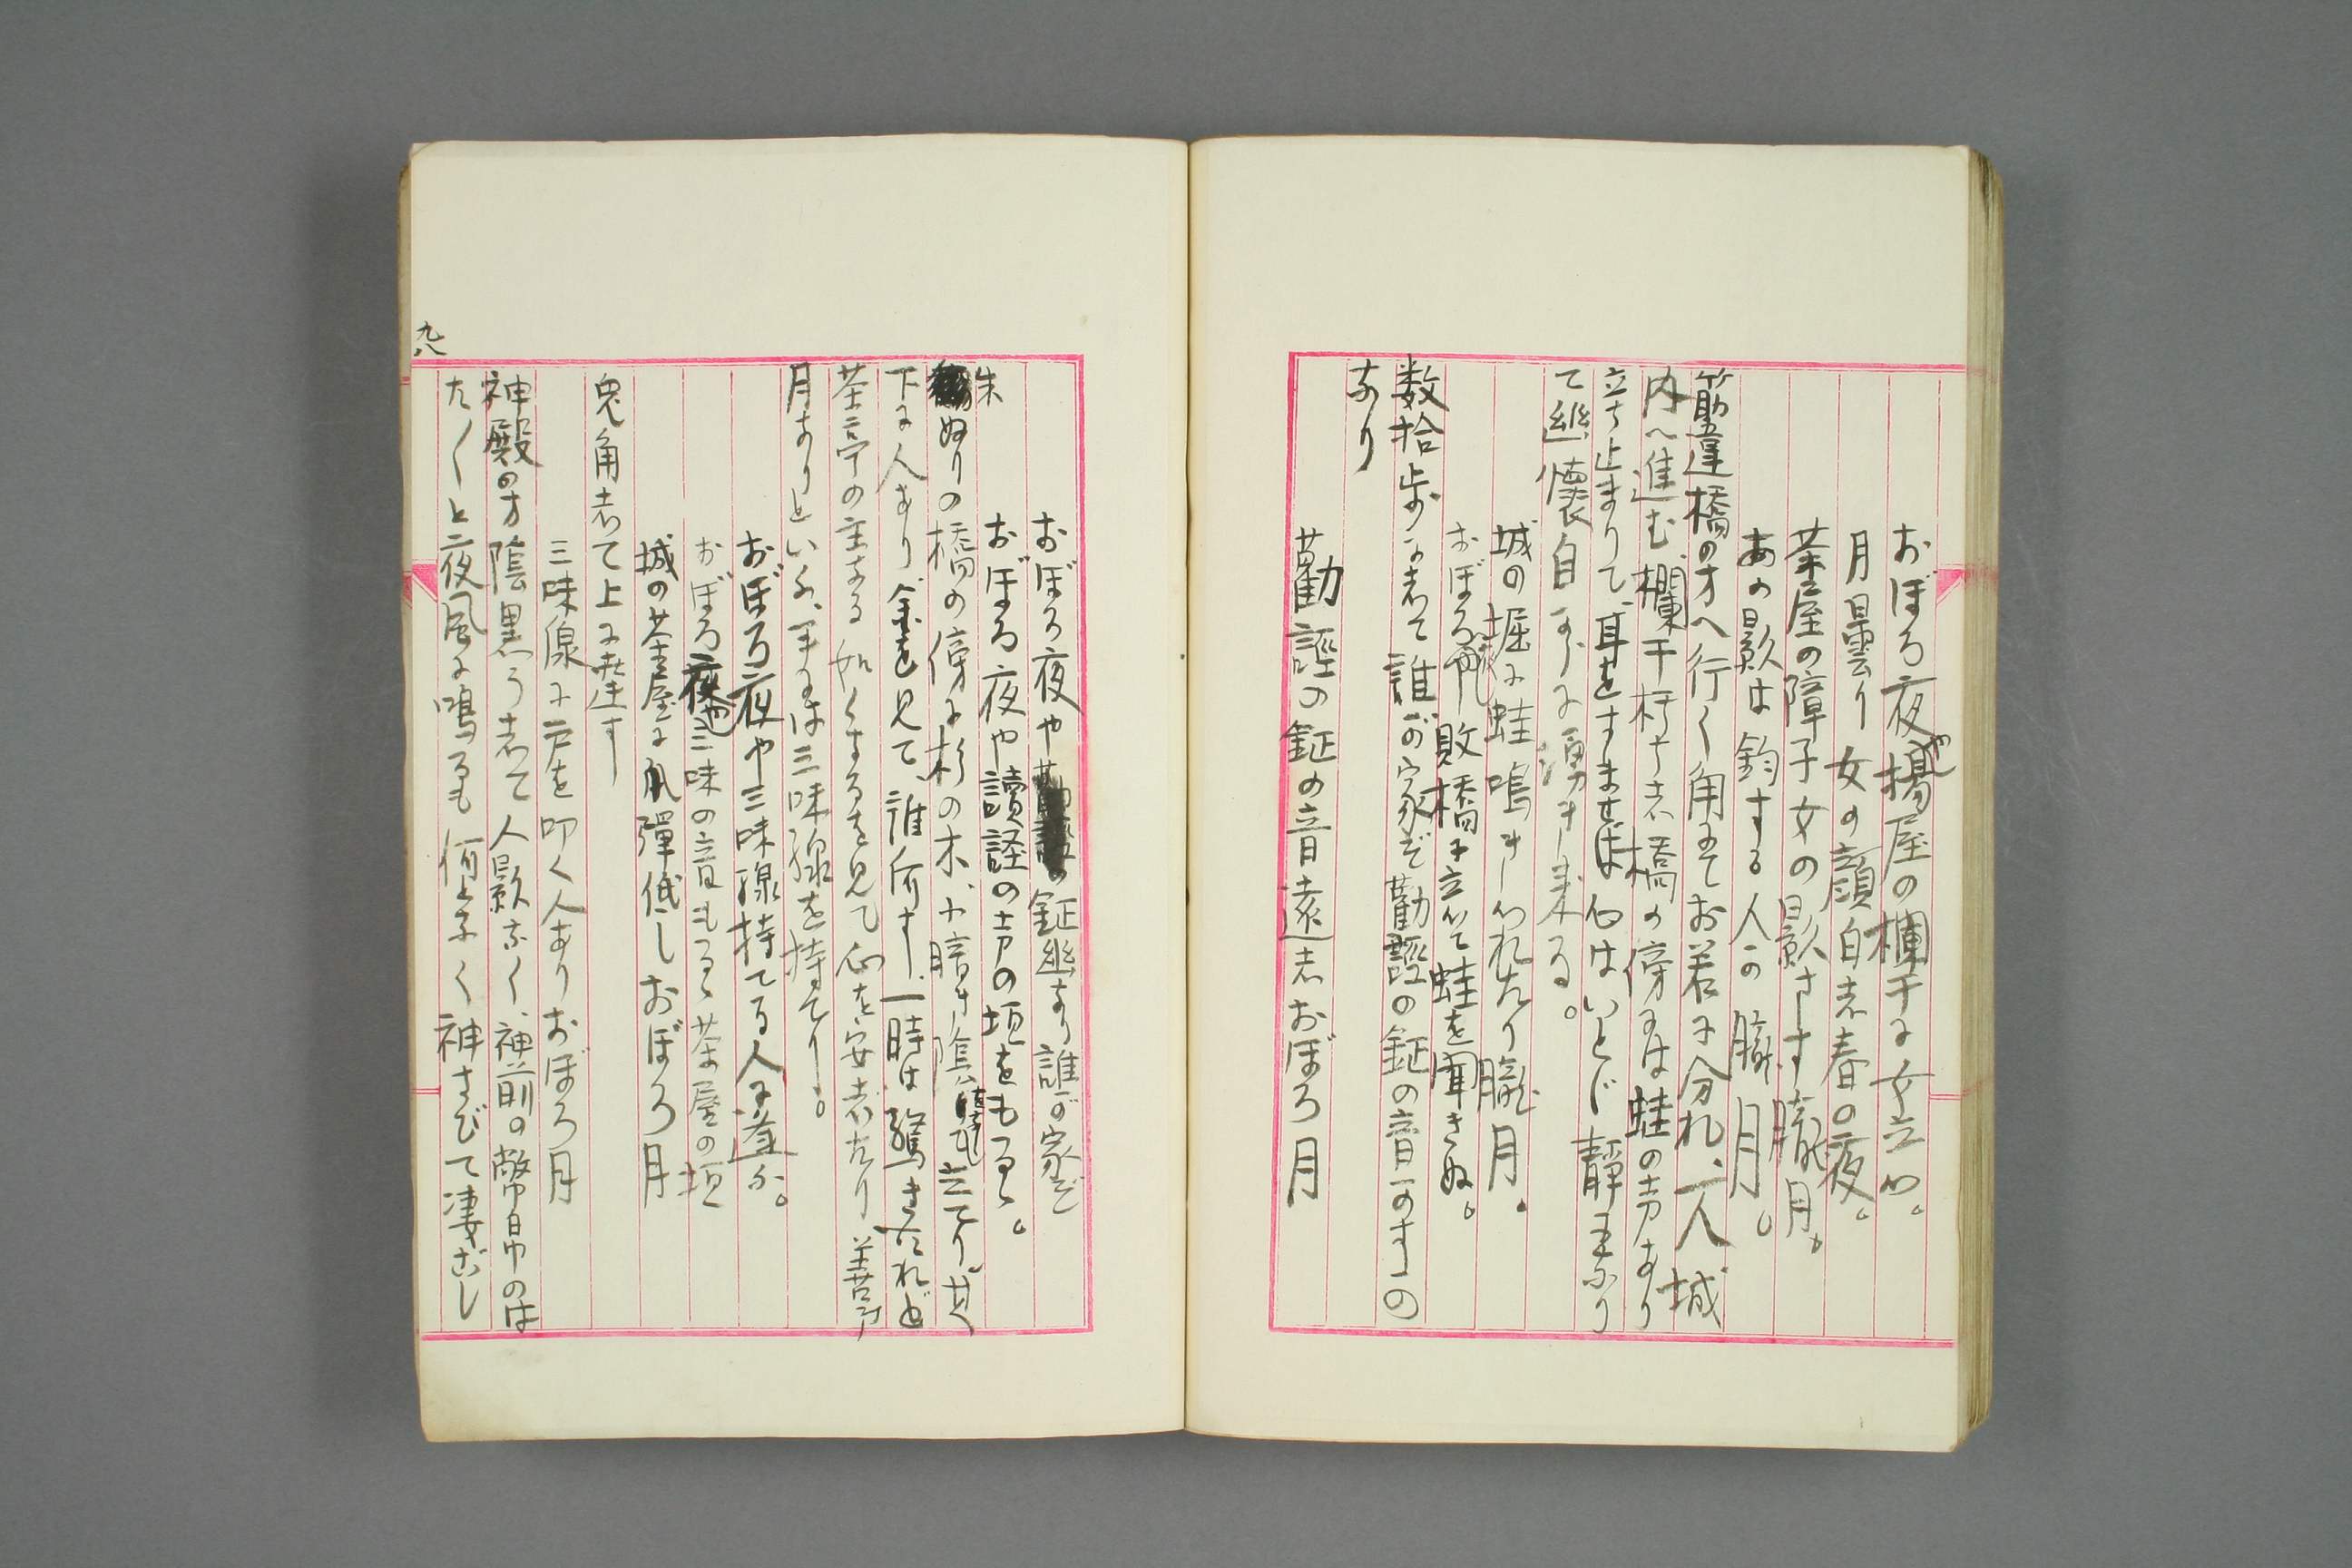 おぼろ夜や揚屋の欄干に女立つ。
月曇り女の顔白き春の夜。
茶屋の障子女の影さす朧月。
あの影は釣する人か朧月。
筋違橋の方へ行く角にてお若に分れ、一人城
内へ進む、欄干朽ちし橋の傍には蛙の声あり
立ち止まりて、耳をすませば心はいとゞ静になり
て幽懐自からに湧き来る。
城の堀に蛙鳴きつれたり朧月。
おぼろ夜や敗橋に立ちて蛙を聞きぬ。
数拾歩にして誰が家ぞ勧経の鉦の音かすか
なり
勧経の鉦の音遠しおぼろ月
おぼろ夜や鉦幽なり誰が家ぞ
おぼろ夜や読経の声の垣をもるゝ。
朱ぬりの橋の傍に杉の木、小暗き陰立てり、其
下に人あり余を見て、誰何す、一時は驚きたれど
茶亭の主なる如くなるを見て心を安したり善哉
月なりといふ、手には三味線を持てり。
おぼろ夜や三味線持てる人に逢ふ。
おぼろ夜や三味の音もるゝ茶屋の垣
城の茶屋に爪弾低しおぼろ月
兎角して上に登す
三味線に戸を叩く人ありおぼろ月
神殿の方陰黒うして人影なく、神前の幣帛のは
た〱と夜風に鳴るも何となく神さびて凄ごし
九八